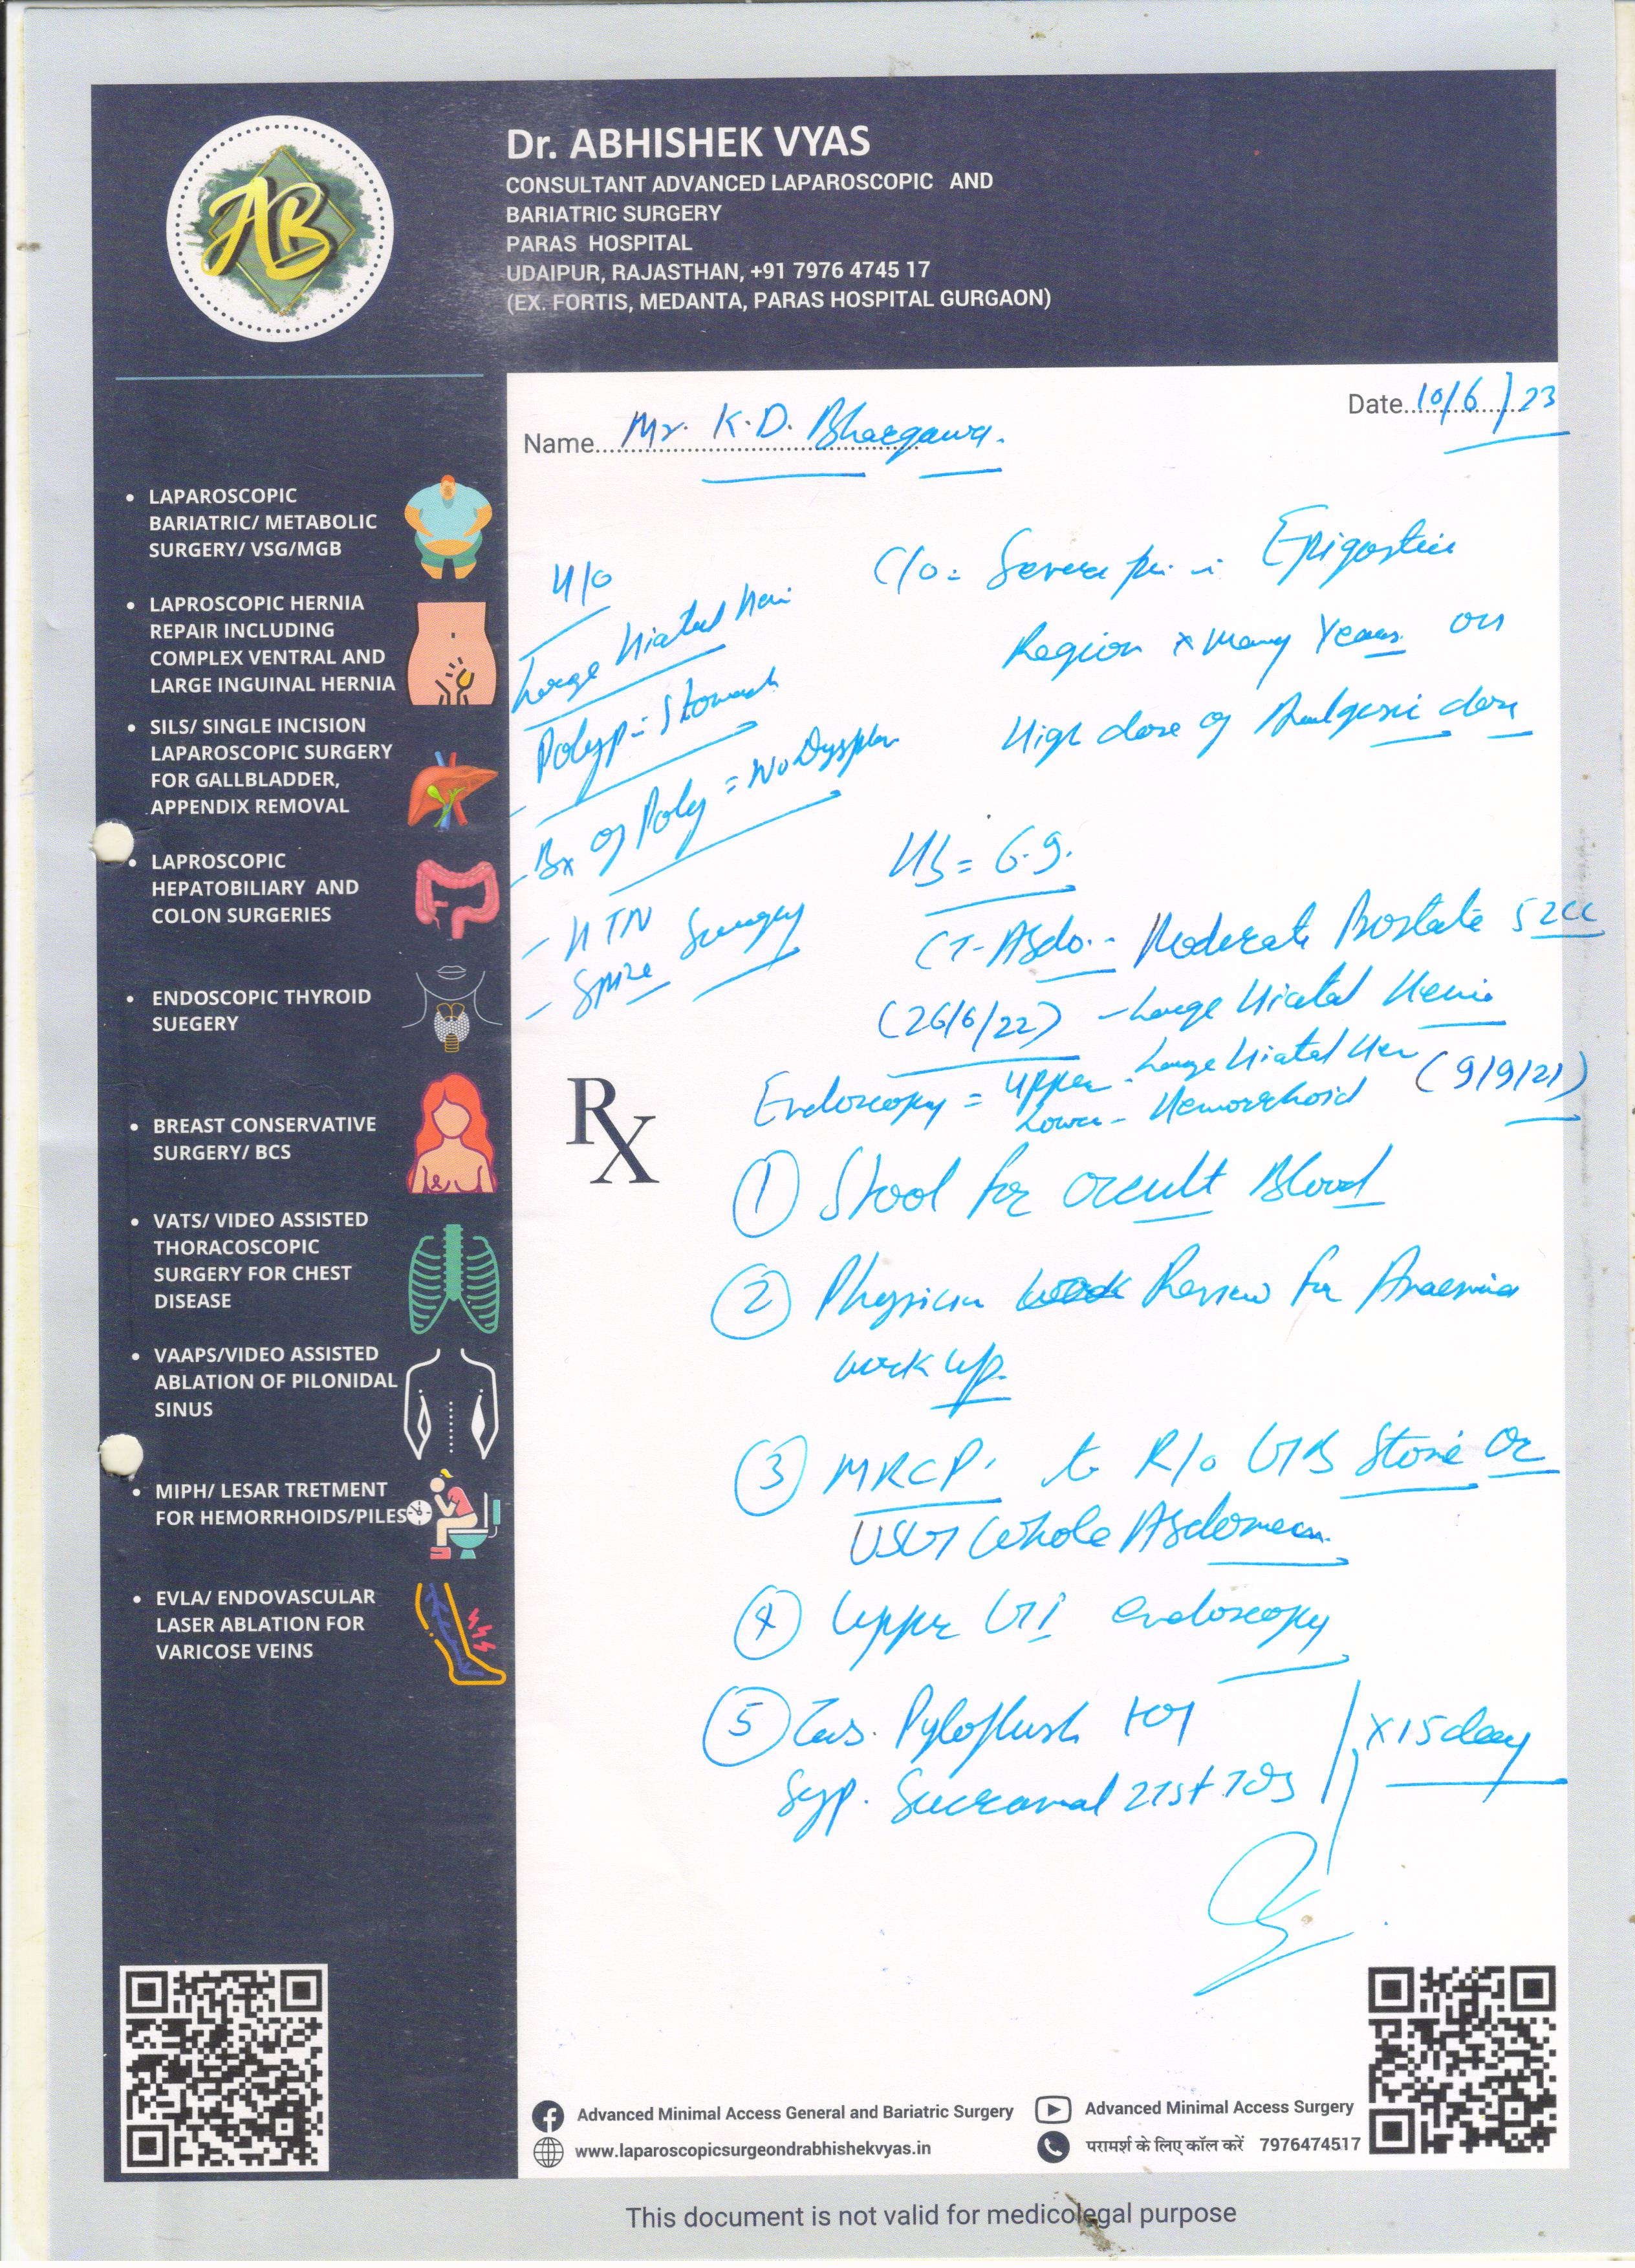 AB
Dr. ABHISHEK VYAS
CONSULTANT ADVANCED LAPAROSCOPIC AND
BARIATRIC SURGERY
PARAS HOSPITAL
UDAIPUR, RAJASTHAN, +91 7976 4745 17
(EX. FORTIS, MEDANTA, PARAS HOSPITAL GURGAON)
Date 10/6/23
Name Mr. K.D. Bhargawa.
• LAPAROSCOPIC
BARIATRIC/ METABOLIC
SURGERY/ VSG/MGB
• LAPROSCOPIC HERNIA
REPAIR INCLUDING
COMPLEX VENTRAL AND
LARGE INGUINAL HERNIA
• SILS/ SINGLE INCISION
LAPAROSCOPIC SURGERY
FOR GALLBLADDER,
APPENDIX REMOVAL
• LAPROSCOPIC
HEPATOBILIARY AND
COLON SURGERIES
• ENDOSCOPIC THYROID
SUEGERY
• BREAST CONSERVATIVE
SURGERY/ BCS
• VATS/ VIDEO ASSISTED
THORACOSCOPIC
SURGERY FOR CHEST
DISEASE
• VAAPS/VIDEO ASSISTED
ABLATION OF PILONIDAL
SINUS
• MIPH/ LESAR TRETMENT
FOR HEMORRHOIDS/PILES
• EVLA/ ENDOVASCULAR
LASER ABLATION FOR
VARICOSE VEINS
H/o
Large Hiatal
Polyp = Stomach
Bx of Poly = No
- HTN
- Spine Surgery
C/o = Severe Epigastric
Region x many Years on
High dose of Analgesic dose
Hb = 6.9.
CT-Abdo. - Moderate Prostate 52cc
(26/6/22) - Large Hiatal Hernia
Endoscopy = Upper - Large Hiatal Her (9/9/21)
Lower - Hemorrhoid
Rx
1 Stool for occult Blood
2 Physician Review for Anaemia
work up.
3 MRCP. to R/o GB Stone or
USG Whole Abdomen.
4 Upper GI endoscopy
5 Tab. Pyloflush 101
Syp. Sucramal 2TSF TDS x 15 day
Advanced Minimal Access General and Bariatric Surgery
www.laparoscopicsurgeondrabhishekvyas.in
Advanced Minimal Access Surgery
परामर्श के लिए कॉल करें 7976474517
This document is not valid for medicolegal purpose